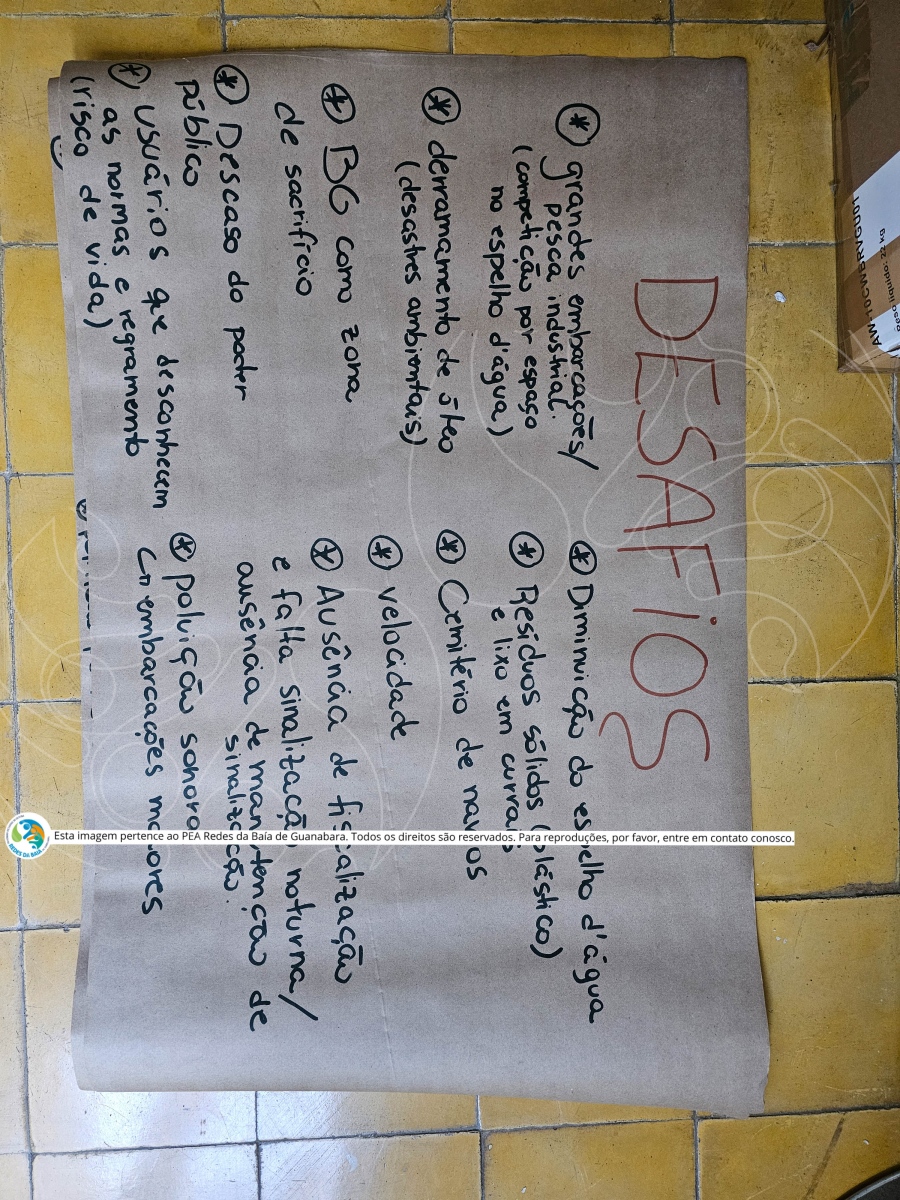 DESAFIOS
* grandes embarcações/
pesca industrial.
(competição por espaço
no espelho d'água)
* derramamento de óleo
(desastres ambientais)
* BG como zona
de sacrifício
* Descaso do poder
público
* Usuários que desconhecem
as normas e regramento
(risco de vida)
* Diminuição do espelho d'água
* Resíduos sólidos (plástico)
e lixo em currais
* Cemitério de navios
* velocidade
* Ausência de fiscalização
e falta sinalização noturna/
ausência de manutenção de
sinalização.
* poluição sonora
embarcações maiores
Esta imagem pertence ao PEA Redes da Baía de Guanabara. Todos os direitos são reservados. Para reproduções, por favor, entre em contato conosco.
REDES DA BAÍA
AW-10CWBRVGU01
peso líquido: 22 kg